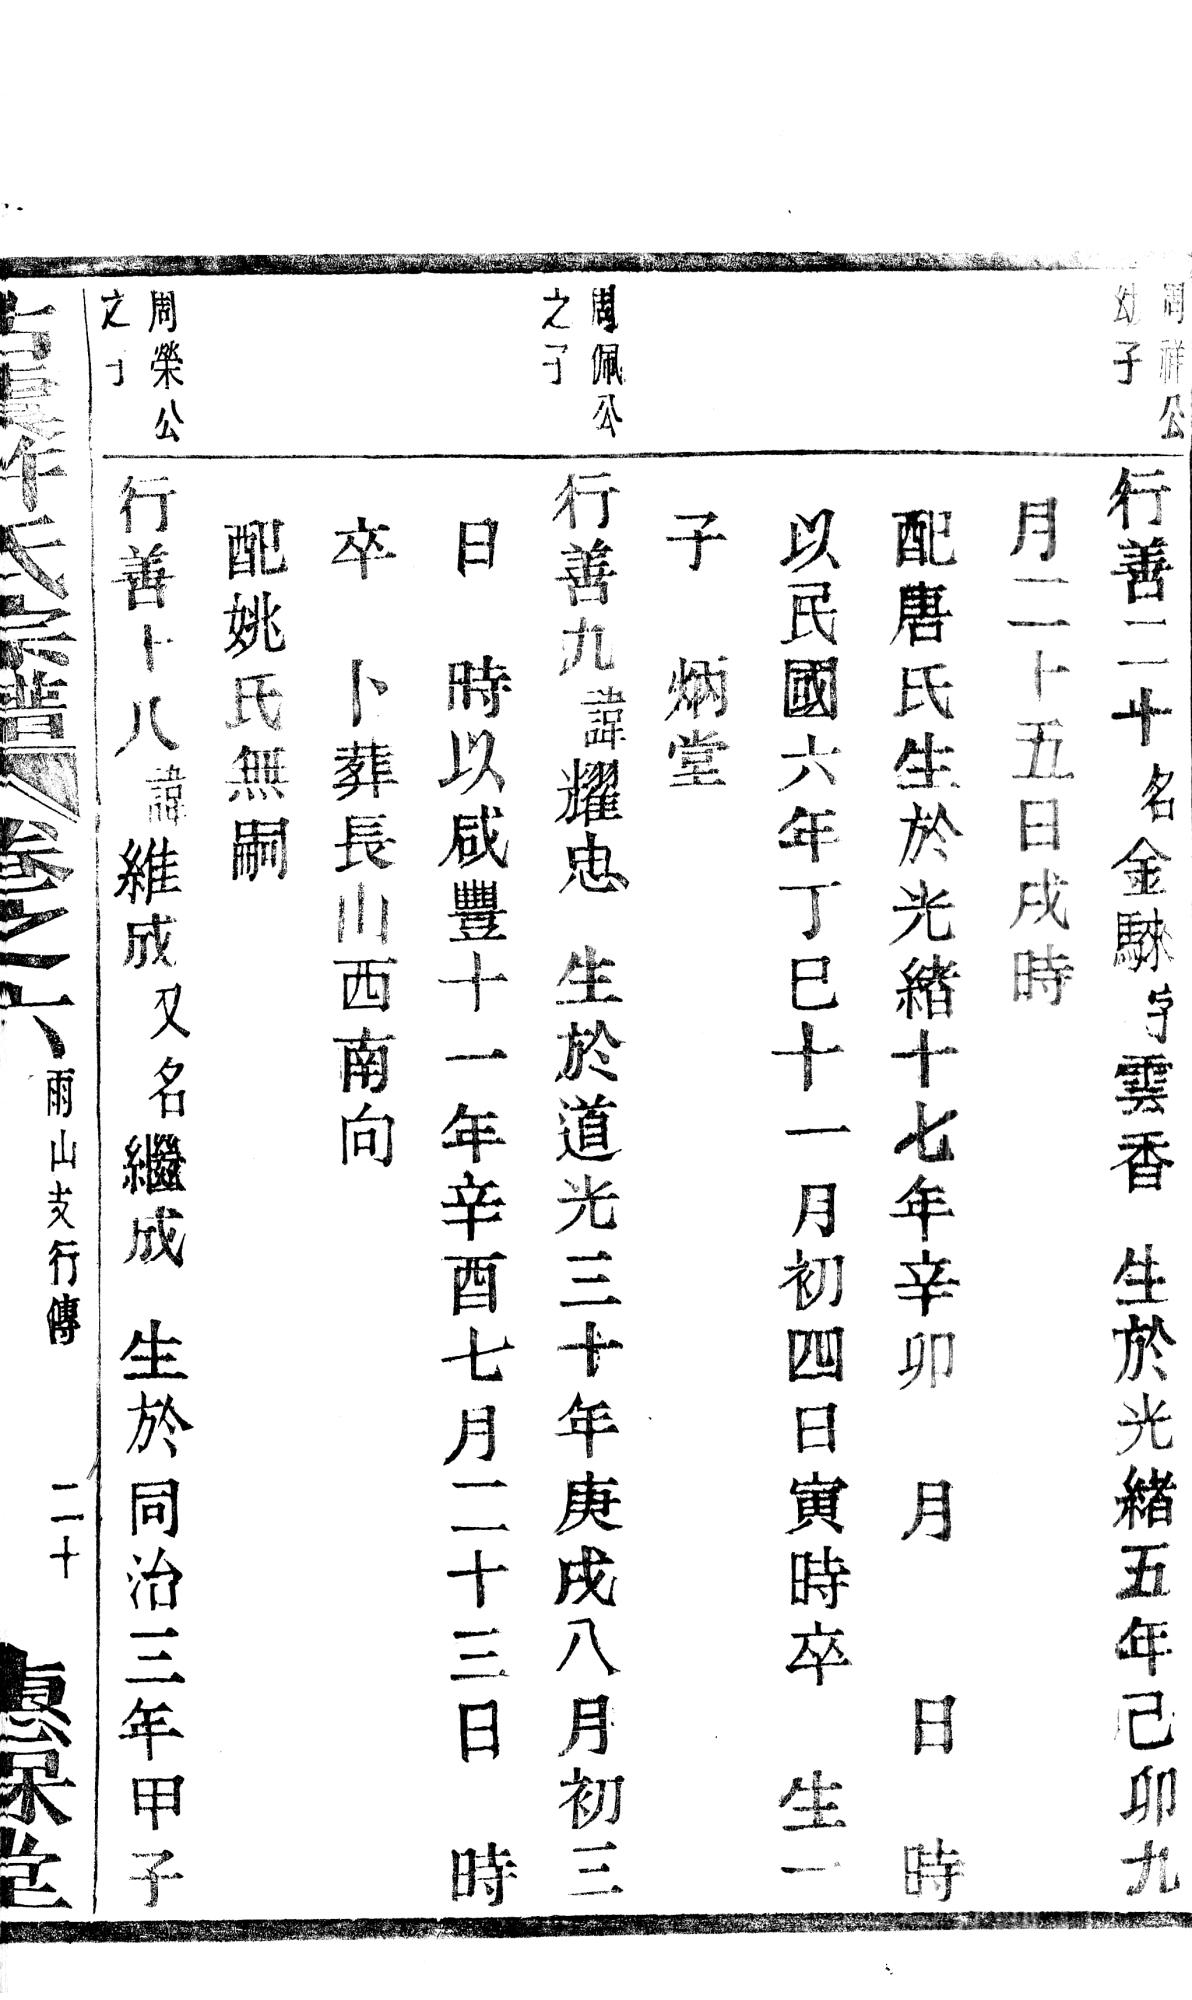 周祥公
幼子
行善二十名金騋字雲香 生於光緒五年己卯九
月二十五日戌時
配唐氏生於光緒十七年辛卯 月 日 時
以民國六年丁巳十一月初四日寅時卒 生一
子 炳堂
周佩公
之子
行善九諱耀忠 生於道光三十年庚戌八月初三
日 時以咸豐十一年辛酉七月二十三日 時
卒 卜葬長山西南向
配姚氏無嗣
周榮公
之子
行善十八諱維成又名繼成 生於同治三年甲子
氏宗譜 卷之六 雨山支行傳 二十 堂